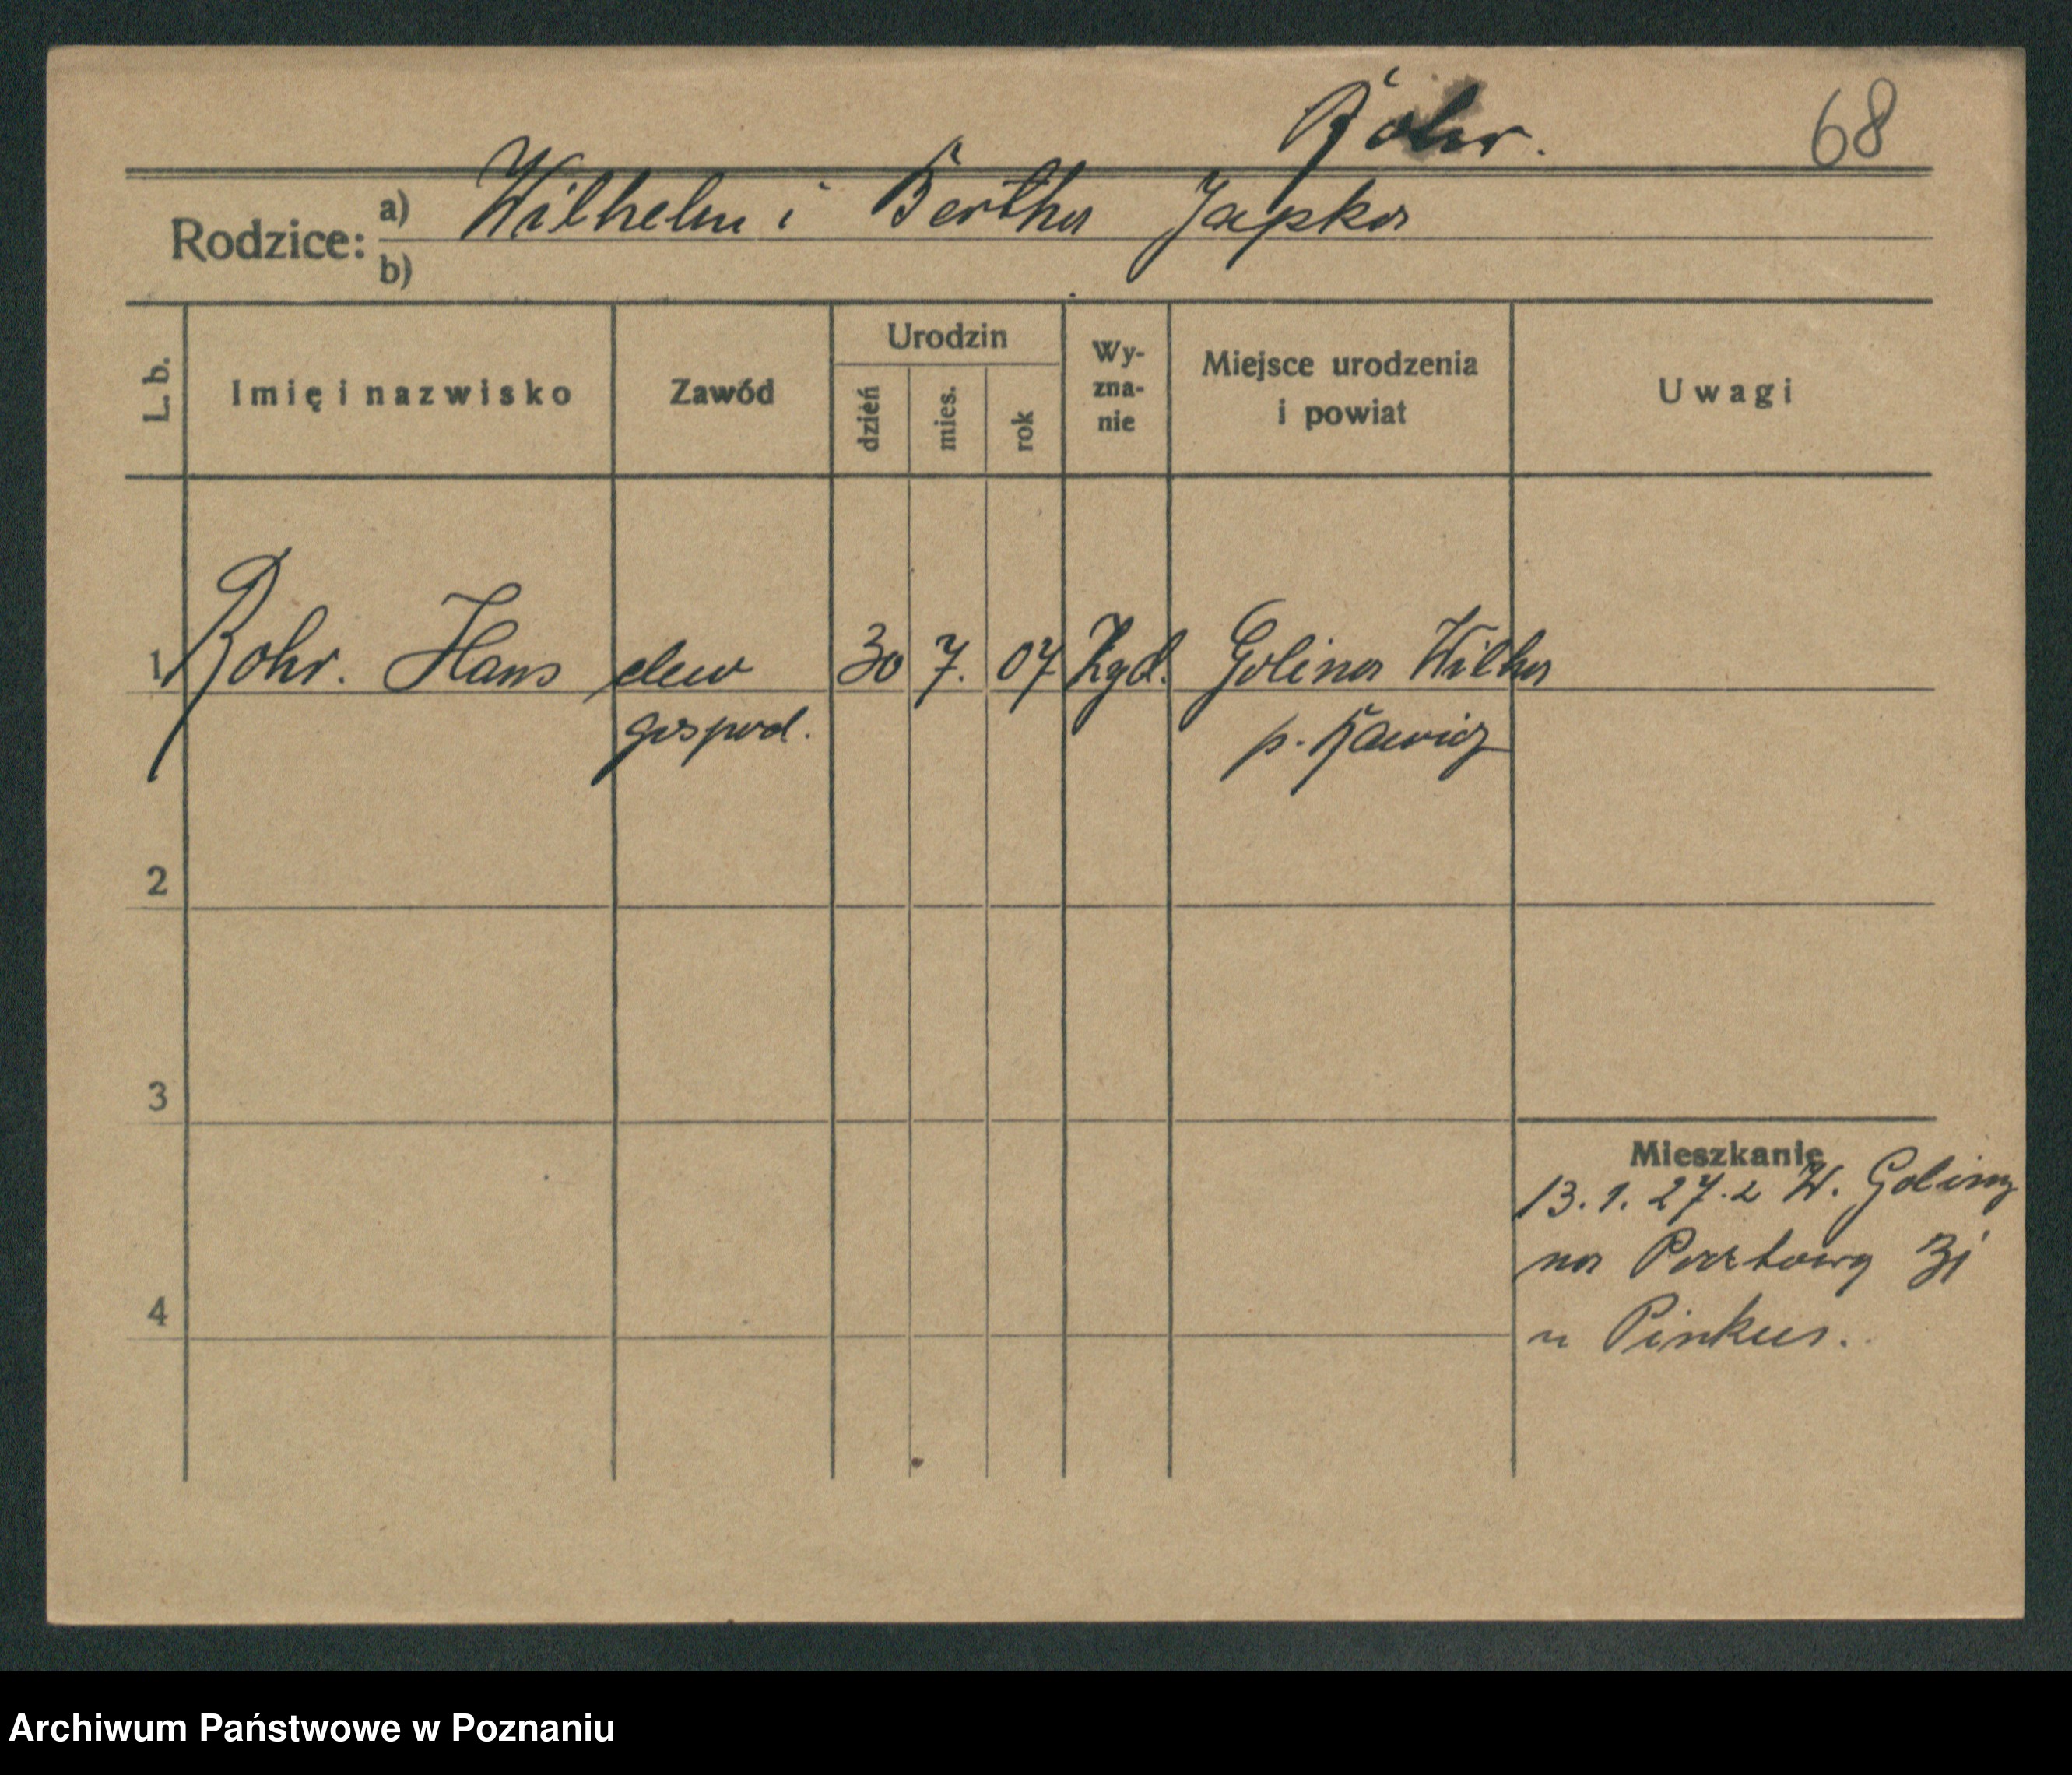 Rohr.
68
Rodzice: a) Wilhelm i Bertha Japka
b)
L. b. Imię i nazwisko Zawód Urodzin dzień mies. rok Wy-zna-nie Miejsce urodzenia i powiat Uwagi
1 Rohr. Hans elew 30 7. 07 Golina Wilka
gospod. p. Rawicz
2
3
Mieszkanie
13.1.27. z W. Goliny
na Pocztową 31
4
u Pinkus.
Archiwum Państwowe w Poznaniu